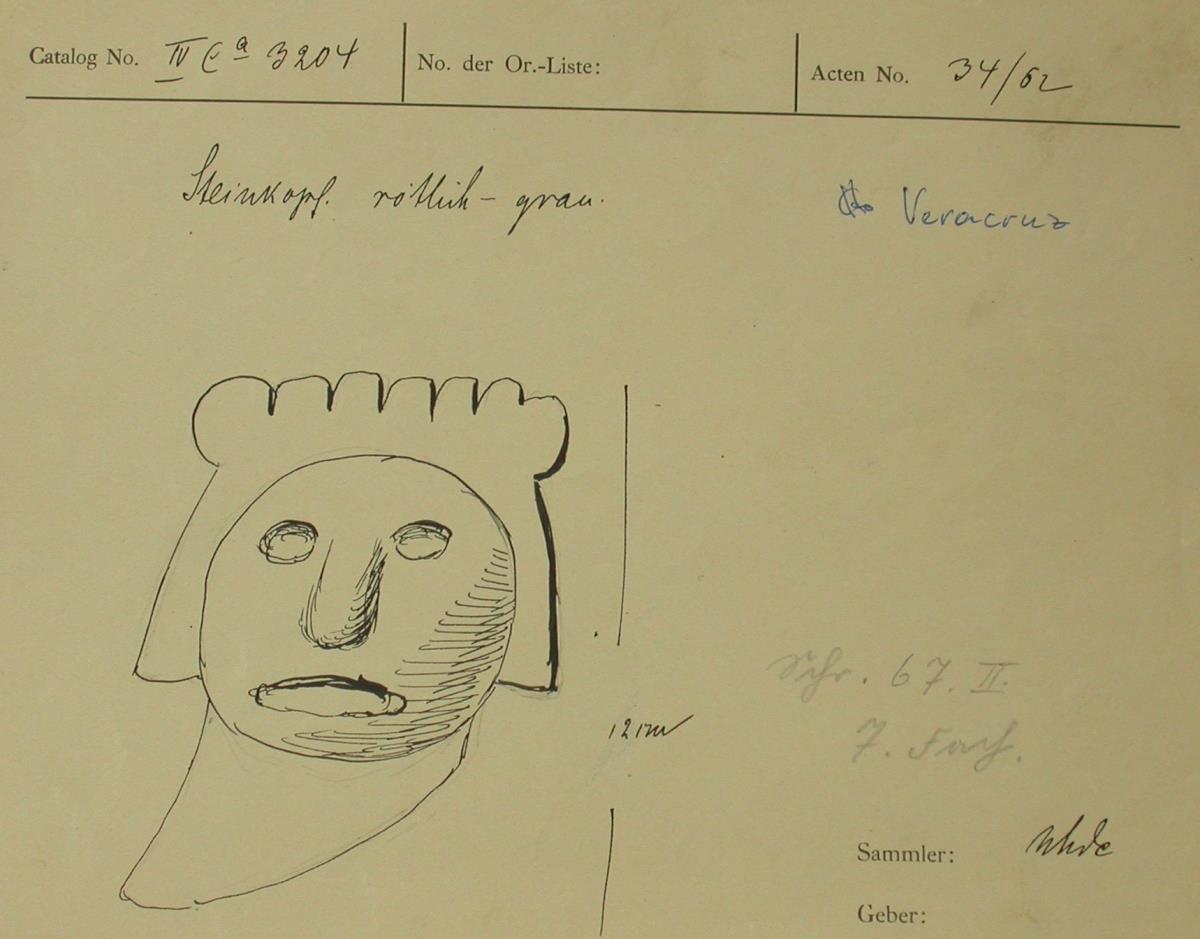 Catalog No. IV Ca 3204
No. der Or.-Liste:
Acten No. 34/62
Steinkopf. rötlich-grau.
Veracruz
12 cm
Schr. 67. II.
7. Fach.
Sammler: Uhde
Geber: